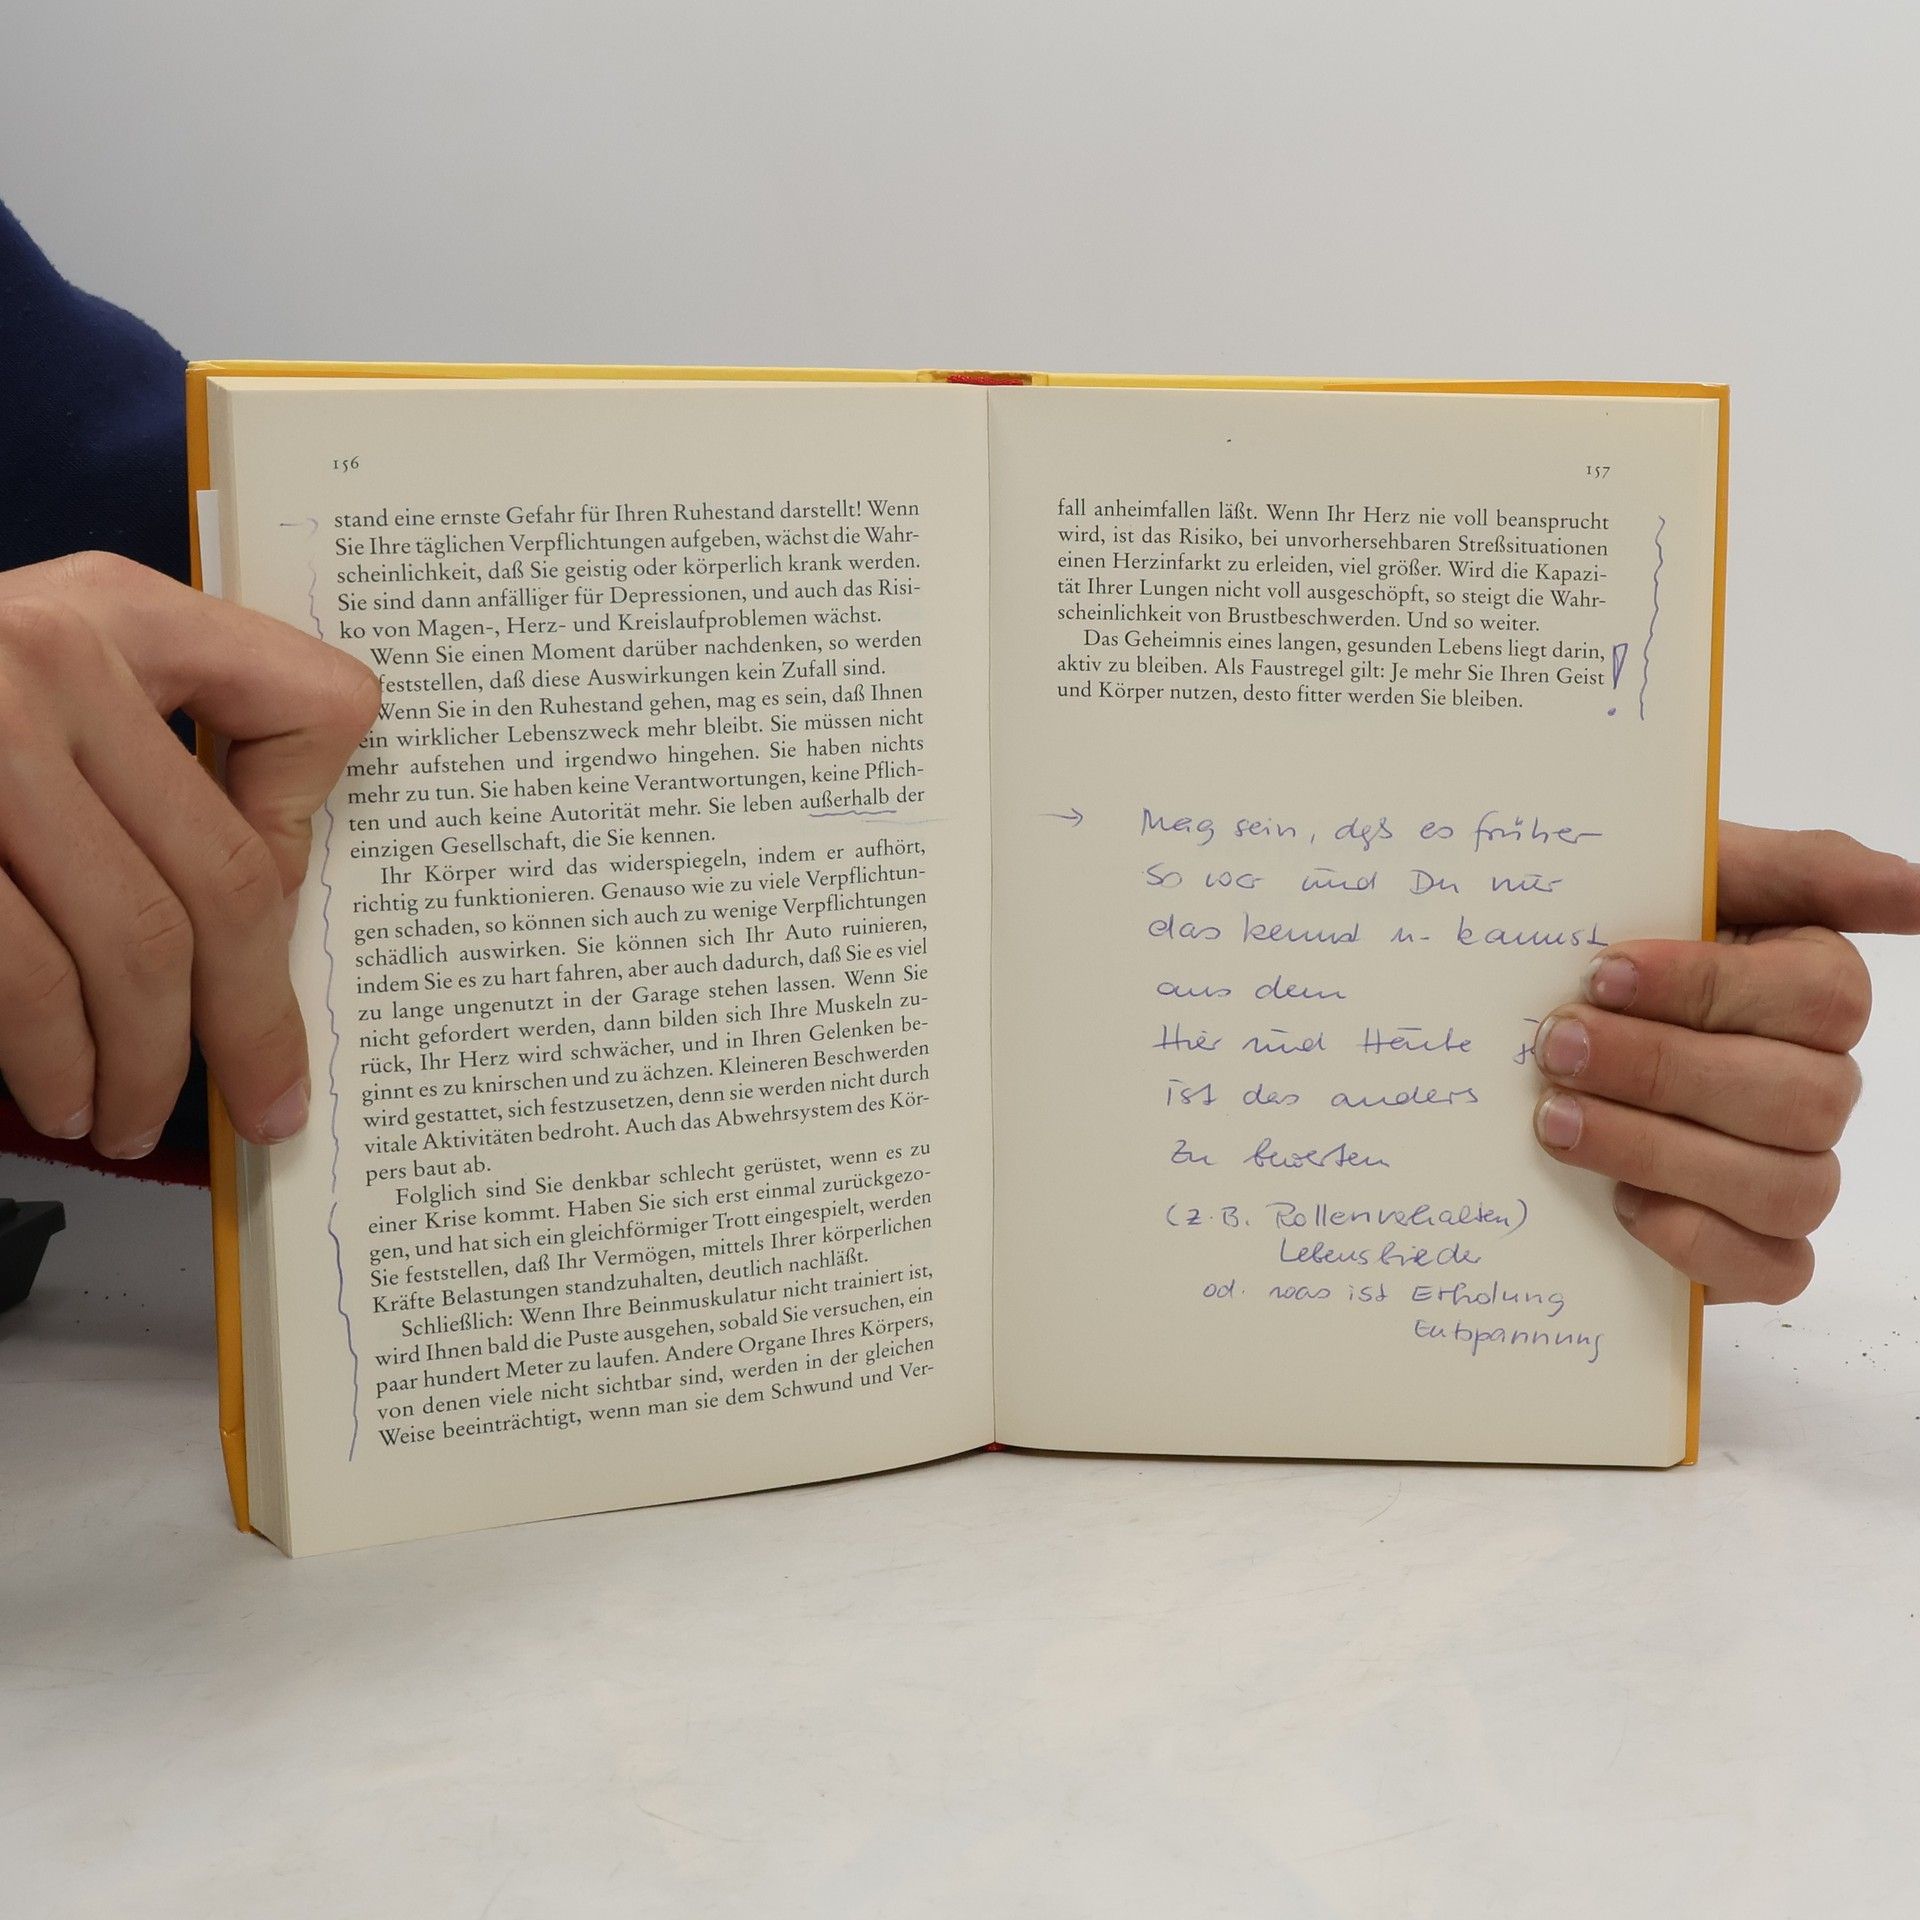 156
stand eine ernste Gefahr für Ihren Ruhestand darstellt! Wenn
Sie Ihre täglichen Verpflichtungen aufgeben, wächst die Wahr-
scheinlichkeit, daß Sie geistig oder körperlich krank werden.
Sie sind dann anfälliger für Depressionen, und auch das Risi-
ko von Magen-, Herz- und Kreislaufproblemen wächst.
Wenn Sie einen Moment darüber nachdenken, so werden
feststellen, daß diese Auswirkungen kein Zufall sind.
Wenn Sie in den Ruhestand gehen, mag es sein, daß Ihnen
ein wirklicher Lebenszweck mehr bleibt. Sie müssen nicht
mehr aufstehen und irgendwo hingehen. Sie haben nichts
mehr zu tun. Sie haben keine Verantwortungen, keine Pflich-
ten und auch keine Autorität mehr. Sie leben außerhalb der
einzigen Gesellschaft, die Sie kennen.
Ihr Körper wird das widerspiegeln, indem er aufhört,
richtig zu funktionieren. Genauso wie zu viele Verpflichtun-
gen schaden, so können sich auch zu wenige Verpflichtungen
schädlich auswirken. Sie können sich Ihr Auto ruinieren,
indem Sie es zu hart fahren, aber auch dadurch, daß Sie es viel
zu lange ungenutzt in der Garage stehen lassen. Wenn Sie
nicht gefordert werden, dann bilden sich Ihre Muskeln zu-
rück, Ihr Herz wird schwächer, und in Ihren Gelenken be-
ginnt es zu knirschen und zu ächzen. Kleineren Beschwerden
wird gestattet, sich festzusetzen, denn sie werden nicht durch
vitale Aktivitäten bedroht. Auch das Abwehrsystem des Kör-
pers baut ab.
Folglich sind Sie denkbar schlecht gerüstet, wenn es zu
einer Krise kommt. Haben Sie sich erst einmal zurückgezo-
gen, und hat sich ein gleichförmiger Trott eingespielt, werden
Sie feststellen, daß Ihr Vermögen, mittels Ihrer körperlichen
Kräfte Belastungen standzuhalten, deutlich nachläßt.
Schließlich: Wenn Ihre Beinmuskulatur nicht trainiert ist,
wird Ihnen bald die Puste ausgehen, sobald Sie versuchen, ein
paar hundert Meter zu laufen. Andere Organe Ihres Körpers,
von denen viele nicht sichtbar sind, werden in der gleichen
Weise beeinträchtigt, wenn man sie dem Schwund und Ver-
157
fall anheimfallen läßt. Wenn Ihr Herz nie voll beansprucht
wird, ist das Risiko, bei unvorhersehbaren Streßsituationen
einen Herzinfarkt zu erleiden, viel größer. Wird die Kapazi-
tät Ihrer Lungen nicht voll ausgeschöpft, so steigt die Wahr-
scheinlichkeit von Brustbeschwerden. Und so weiter.
Das Geheimnis eines langen, gesunden Lebens liegt darin,
aktiv zu bleiben. Als Faustregel gilt: Je mehr Sie Ihren Geist
und Körper nutzen, desto fitter werden Sie bleiben.
→ Mag sein, daß es früher
so war und Du nur
das kennst u. kannst
aus dem
Hier und Heute
ist das anders
zu bewerten
(z.B. Rollenverhalten)
od. was ist Erholung
Entspannung